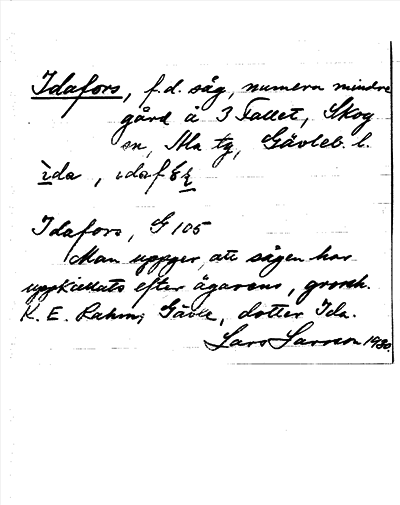 Idafors, f.d. såg, numera mindre
gård å 3 Fallet, Skog
sn, Ala tg, Gävleb. l.
ìda, ıdaf
Idafors, G 105
Man uppger, att sågen har
uppkallats efter ägarens, grossh.
K. E. Rahm, Gävle, dotter Ida.
Lars Larsson 1930.